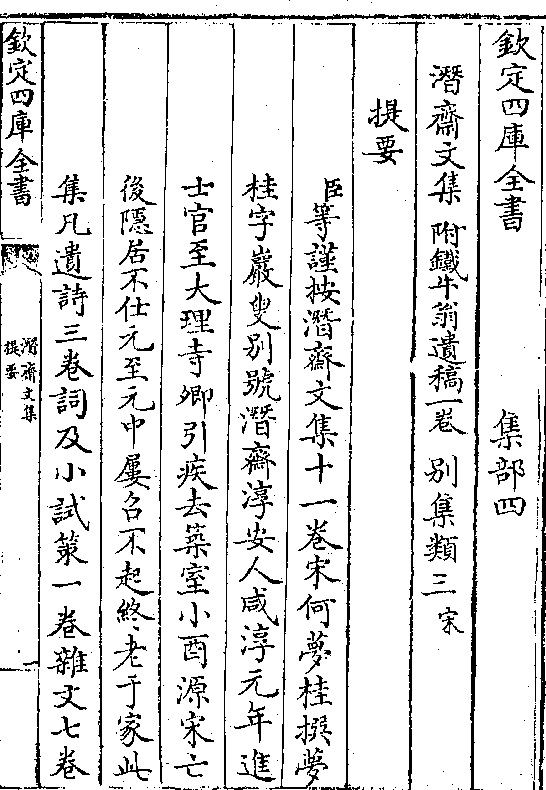 欽定四庫全書 集部四
潛齋文集 附鐵牛翁遺稿一卷 別集類三 宋
提要
臣等謹按潛齋文集十一卷宋何夢桂撰夢
桂字巖叟別號潛齋淳安人咸淳元年進
士官至大理寺卿引疾去築室小酉源宋亡
後隱居不仕元至元中屢召不起終老于家此
集凡遺詩三卷詞及小試策一卷雜文七卷
欽定四庫全書
潛齋文集
提要